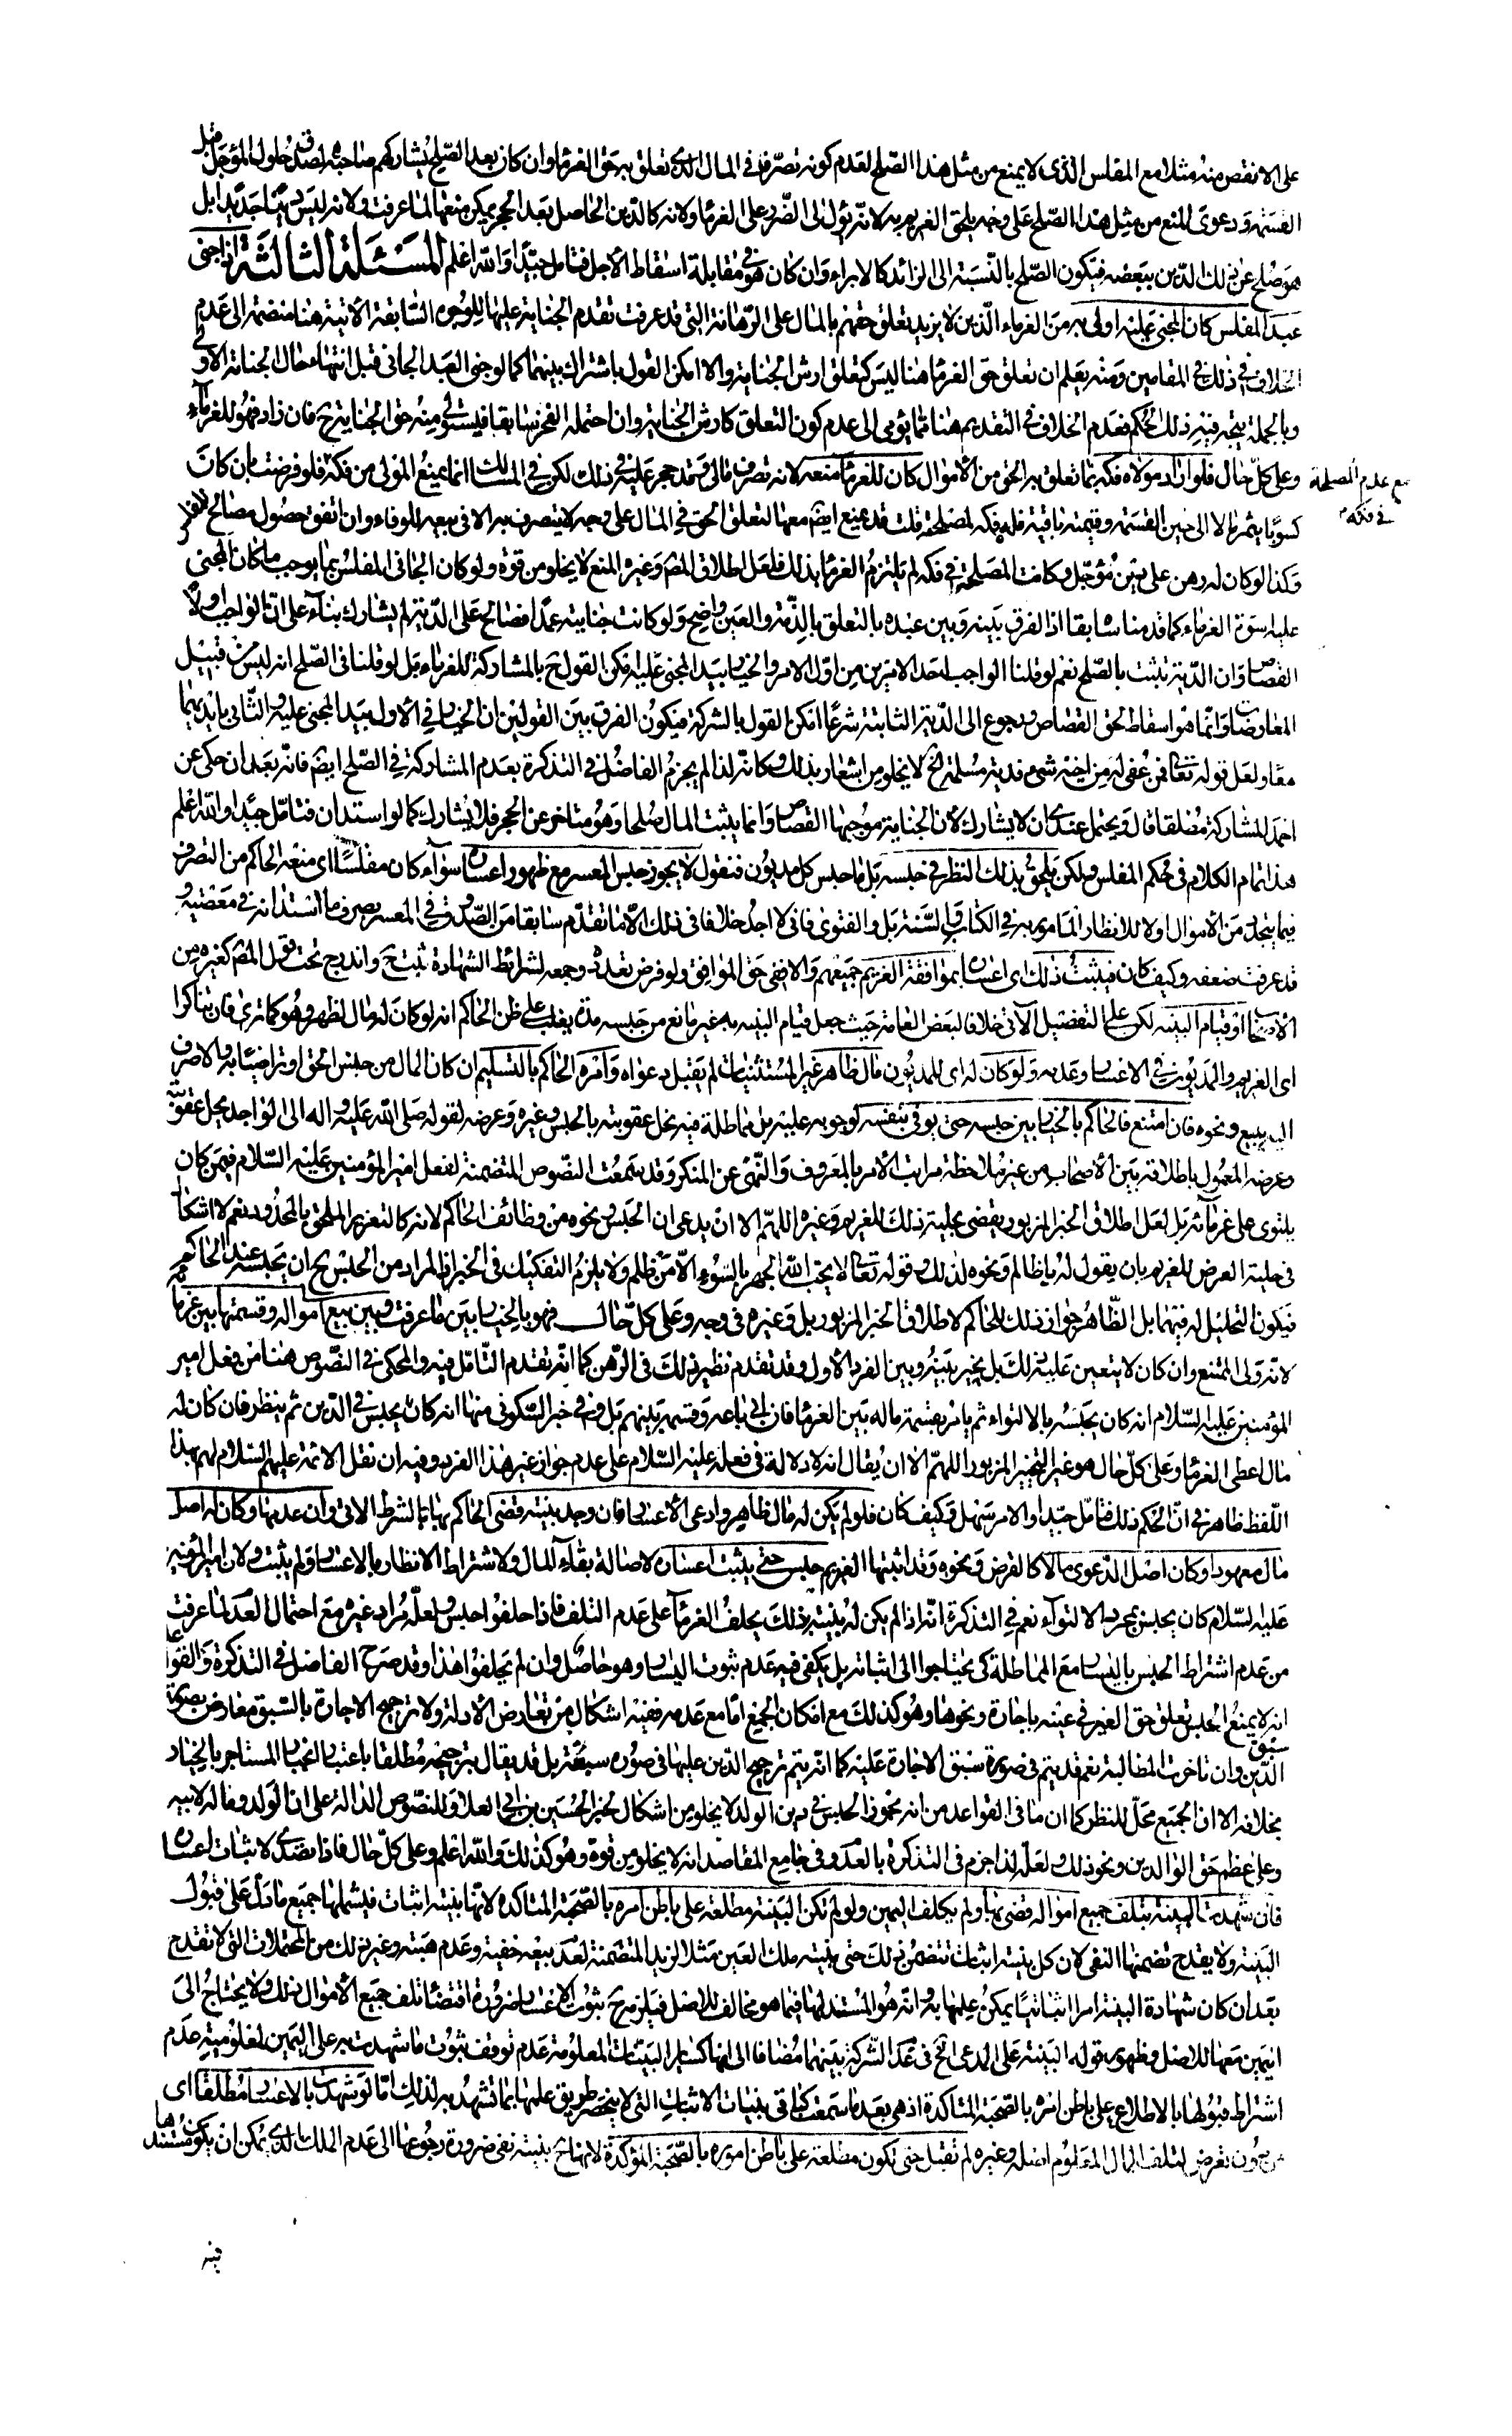 على الانقص منه مثلا مع المفلس الذى لا يمنع من مثل هذا الصلح لعدم كونه تصرفا فى المال الذى تعلق به حق الغرماء وان كان بعد الصلح يشاركهم صاحبه لصدق حلول المؤجل قبل
القسمة ودعوى المنع من مثل هذا الصلح على وجه يلحق الغريم به لانه يؤل الى الضرر على الغرماء ولانه كالدين الحاصل بعد الحجر يمكن منعها لما عرفت ولانه ليس دينا جديدا بل
هو صلح عن ذلك الدين ببعضه فيكون الصلح بالنسبة الى الزائد كالابراء وان كان هو فى مقابلة اسقاط الاجل فتامل جيدا والله اعلم المسئلة الثالثة اذا جنى
عبد المفلس كان المجنى عليه اولى به من الغرماء الذين لا يزيد تعلق حقهم بالمال على الرهانة التى قد عرفت تقدم الجناية عليها للوجوه السابقة الاتية هنا منضمة الى عدم
الخلاف فى ذلك فى المقامين ومنه يعلم ان تعلق حق الغرماء هنا ليس كتعلق ارش الجناية والا امكن القول باشتراك بينهما كما لو جنى العبد الجانى قبل انتهاء حال الجناية الاولى
وبالجملة يتجه فيه ذلك الحكم فعدم الخلاف فى التقديم هنا مما يومى الى عدم كون التعلق كارش الجناية وان احتمله الفخر سابقا فيستوفى منه حق الجناية ح فان زاد فهو للغرماء
وعلى كل حال فلو اراد مولاه فكه بما تعلق به الحق من الاموال كان للغرماء منعه لانه تصرف مالى وقد حجر عليه فى ذلك لكن فى المسالك انما يمنع المولى من فكه فلو فرضت بان كان
مع عدم المصلحة
فى فكه م
كسوبا يثمر مالا الى حين القسمة وقيمته باقية فله فكه لمصلحة قلت قد يمنع ايضا معها لتعلق الحق فى المال على وجه لا يتصرف به الا فى بيعه للوفاء وان اتفق حصول مصالح للغرماء
وكذا لو كان له رهن على دين مؤجل وكانت المصلحة فى فكه لم يلتزم الغرماء بذلك فلعل اطلاق المصنف وغيره المنع لا يخلو من قوة ولو كان الجانى المفلس بما يوجب مالا كان المجنى
عليه اسوة الغرماء كما قدمناه سابقا اذ الفرق بينه وبين عبده بالتعلق بالذمة والعين واضح ولو كانت جنايته عمدا فصالح على الدية لم يشارك بناء على ان الواجب اولا
القصاص وان الدية تثبت بالصلح نعم لو قلنا الواجب احد الامرين من اول الامر والخيار بيد المجنى عليه امكن القول ح بالمشاركة للغرماء بل لو قلنا فى الصلح انه ليس من قبيل
المعاوضات وانما هو اسقاط لحق القصاص ورجوع الى الدية الثابتة شرعا امكن القول بالشركة فيكون الفرق بين القولين ان الخيار فى الاول بيد المجنى عليه والثانى بايديهما
معا ولعل قوله تعالى فمن عفى له من اخيه شئ فدية مسلمة الخ لا يخلو من اشعار بذلك وكانه لذا لم يجزم الفاضل فى التذكرة بعدم المشاركة فى الصلح ايضا فانه بعد ان حكى عن
احمد المشاركة مطلقا قال ويحتمل عندى ان لا يشارك لان الجناية موجبها القصاص وانما يثبت المال صلحا وهو متاخر عن الحجر فلا يشارك كما لو استدان فتامل جيدا والله اعلم
هذا تمام الكلام فى حكم المفلس ولكن يلحق بذلك النظر فى حبسه بل ما حبس كل مديون فنقول لا يجوز حبس المعسر مع ظهور اعساره سواء كان مفلسا اى منعه الحاكم من التصرف
فيما يتجدد من الاموال اولا للانظار المامور به فى الكتاب والسنة بل والفتوى فانى لا اجد خلافا فى ذلك الا ما تقدم سابقا من الصدوق فى المعسر بصرف ما استدانه فى معصية
قد عرفت ضعفه وكيف كان فيثبت ذلك اى اعساره بموافقة الغريم جميعهم والا ففى حق الموافق ولو فرض تعدده وجمعه لشرائط الشهادة ثبت ح واندرج تحت قول المصنف كغيره من
الاصحاب او قيام البينة لكن على التفصيل الاتى خلافا لبعض العامة حيث جعل قيام البينة به غير مانع من حبسه مدة يغلب على ظن الحاكم انه لو كان له مال لظهر وهو كما ترى فان تناكرا
اى الغريم والمديون فى الاعسار وعدمه ولو كان له اى للمديون مال ظاهر غير المستثنيات لم يقبل دعواه وامره الحاكم بالتسليم ان كان المال من جنس الحق او تراضيا به والا صرف
اليه ببيع ونحوه فان امتنع فالحاكم بالخيار بين حبسه حتى يوفى بنفسه لوجوبه عليه بل مماطلة فيه تحل عقوبته بالحبس وغيره وعرضه لقوله صلى الله عليه واله لى الواجد يحل عقوبته
وعرضه المعمول باطلاقه بين الاصحاب من غير ملاحظة مراتب الامر بالمعروف والنهى عن المنكر وقد سمعت النصوص المتضمنة لفعل امير المؤمنين عليه السلام فيمن كان
يلتوى على غرمائه بل لعل اطلاق الخبر المزبور يقضى بحلية ذلك للغريم وغيره اللهم الا ان يدعى ان الحبس ونحوه من وظائف الحاكم لانه كالتعزير الملحق بالحدود نعم لا اشكال
فى حلية العرض للغريم بان يقول له يا ظالم ونحوه لذلك وقوله تعالى لا يحب الله الجهر بالسوء الا من ظلم ولا يلزم التفكيك فى الخبر اذ المراد من الحبس ح ان يحبسه عند الحاكم
فيكون التحليل له فيهما بل الظاهر جواز ذلك للحاكم لاطلاق الخبر المزبور بل وغيره فى وجه وعلى كل حال فهو بالخيار بين ما عرفت وبين بيع امواله وقسمتها بين غرمائه
لانه ولى الممتنع وان كان لا يتعين عليه ذلك بل يخير بينه وبين الفرد الاول وقد تقدم نظير ذلك فى الرهن كما انه تقدم التامل فيه والمحكى فى النصوص هنا من فعل امير
المؤمنين عليه السلام انه كان يحبسه بالالتواء ثم يامر بقسمة ماله بين الغرماء فان ابى باعه وقسمه بينهم بل وفى خبر السكونى منها انه كان يحبس فى الدين ثم ينظر فان كان له
مال اعطى الغرماء وعلى كل حال هو غير التخيير المزبور اللهم الا ان يقال انه لا دلالة فى فعله عليه السلام على عدم جواز غير هذا الفرد وفيه ان نقل الائمة عليهم السلام لهم بهذا
اللفظ ظاهر فى ان الحكم ذلك فتامل جيدا والامر سهل وكيف كان فلو لم يكن له مال ظاهر وادعى الاعسار فان وجد بينة قضى الحاكم بها بالشرط الاتى وان عدمها وكان له اصل
مال معهود او كان اصل الدعوى مالا كالقرض ونحوه وقد اثبتها الغريم حبس حتى يثبت اعساره لاصالة بقاء المال ولاشتراط الانظار بالاعسار ولم يثبت ولان امير المؤمنين
عليه السلام كان يحبس بمجرد الالتواء نعم فى التذكرة انه اذا لم يكن له بينة بذلك يحلف الغرماء على عدم التلف فاذا حلفوا حبس ولعله مراد غيره مع احتمال العدم لما عرفت
من عدم اشتراط الحبس باليسار مع المماطلة كى يحتاجوا الى اثباته بل يكفى فيه عدم ثبوت اليسار وهو حاصل وان لم يحلفوا هذا وقد صرح الفاضل فى التذكرة والقواعد
انه لا يمنع الحبس تعلق حق الغير فى عينه باجارة ونحوها وهو كذلك مع امكان الجمع اما مع عدمه ففيه اشكال من تعارض الادلة ولا ترجيح الاجارة بالسبق معارض بصورة سبق
الدين وان تاخرت المطالبة نعم قد يتم فى صورة سبق الاجارة عليه كما انه يتم ترجيح الدين عليها فى صورة سبقه بل قد يقال بترجيحه مطلقا باعتبار انجبار المستاجر بالخيار
بخلافه الا ان الجميع محل للنظر كما ان ما فى القواعد من انه يجوز الحبس فى دين الولد لا يخلو من اشكال لخبر الحسين بن ابى العلا وللنصوص الدالة على ان الولد وماله لابيه
وعلى عظم حق الوالدين ونحو ذلك ولعله لذا جزم فى التذكرة بالعدم وفى جامع المقاصد انه لا يخلو من قوة وهو كذلك والله اعلم وعلى كل حال فاذا تصدى لاثبات اعساره
فان شهدت البينة بتلف جميع امواله قضى بها ولم يكلف اليمين ولو لم تكن البينة مطلعة على باطن امره بالصحبة المتاكدة لانها بينة اثبات فيشملها جميع ما دل على قبول
البينة ولا يقدح تضمنها النفى لان كل بينة اثبات تتضمن ذلك حتى بينة ملك العين مثلا لزيد المتضمنة لعدم بيعه خفية وعدم هبته وغير ذلك من المحتملات التى لا تقدح
بعد ان كان شهادة البينة امرا اثباتيا يمكن علمها به وانه هو المستند لها فيما هو مخالف للاصل فيلزمه ح ثبوت الاعسار ضرورة اقتضاء تلف جميع الاموال ذلك ولا يحتاج الى
اليمين معها للاصل وظهور قوله البينة على المدعى الخ فى عدم الشركة بينهما مضافا الى انها كسائر البينات المعلومة عدم توقف ثبوت ما شهدت به على اليمين لمعلومية عدم
اشتراط قبولها بالاطلاع على باطن امره بالصحبة المتاكدة اذ هى بعد ما سمعت كباقى بينات الاثبات التى لا ينحصر طريق علمها بما تشهد به لذلك اما لو شهدت بالاعسار مطلقا اى
من دون تعرض لتلف المال المعلوم اصله وغيره لم تقبل حتى تكون مطلعة على باطن اموره بالصحبة المؤكدة لانها ح بينة نفى ضرورة رجوعها الى عدم الملك الذى يمكن ان يكون مستندها